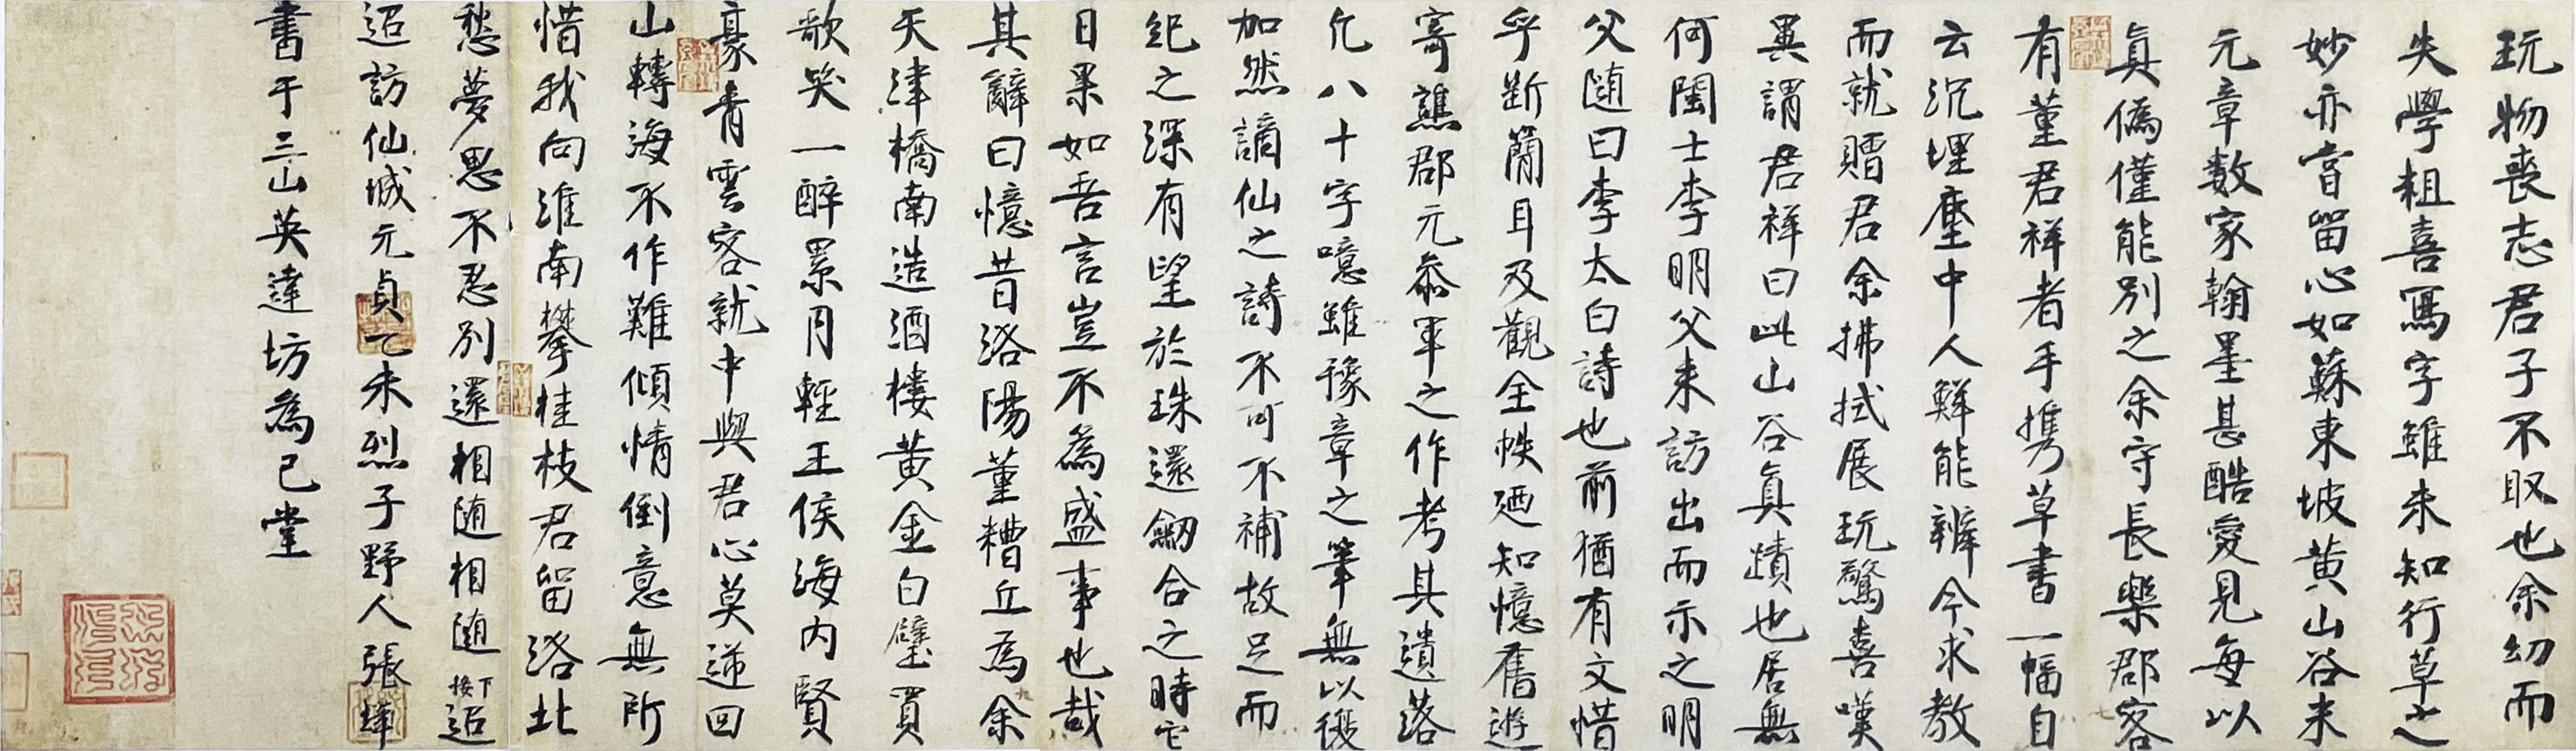 玩物喪志君子不取也余幼而
失學粗喜寫字雖未知行草之
妙亦嘗留心如蘇東坡黄山谷米
元章數家翰墨甚酷愛見每以
真偽僅能別之余守長樂郡客
有董君祥者手攜草書一幅自
云沉埋塵中人鮮能辨今求教
而就贈君余拂拭展玩驚喜嘆
異謂君祥曰此山谷真蹟也居無
何閩士李明父来訪出而示之明
父随曰李太白詩也前猶有文惜
乎斷簡耳及觀全帙廼知憶舊遊
寄譙郡元叅軍之作考其遺落
凡八十字噫雖豫章之筆無以復
加然謫仙之詩不可不補故足而
紀之深有望於珠還劒合之時它
日果如吾言豈不為盛事也哉
其辭曰憶昔洛陽董糟丘為余
天津橋南造酒樓黄金白璧買
歌笑一醉累月輕王侯海内賢
豪青雲客就中與君心莫逆回
山轉海不作難傾情倒意無所
惜我向淮南攀桂枝君留洛北
愁夢思不忍別還相随相随接下迢
迢訪仙城元貞乙未烈子野人張鐸
書于三山英達坊為己堂